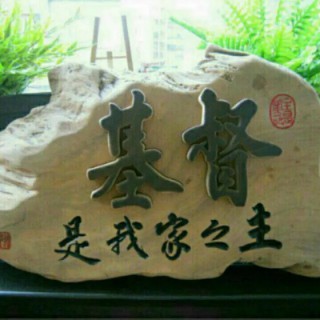 基督
是我家之主